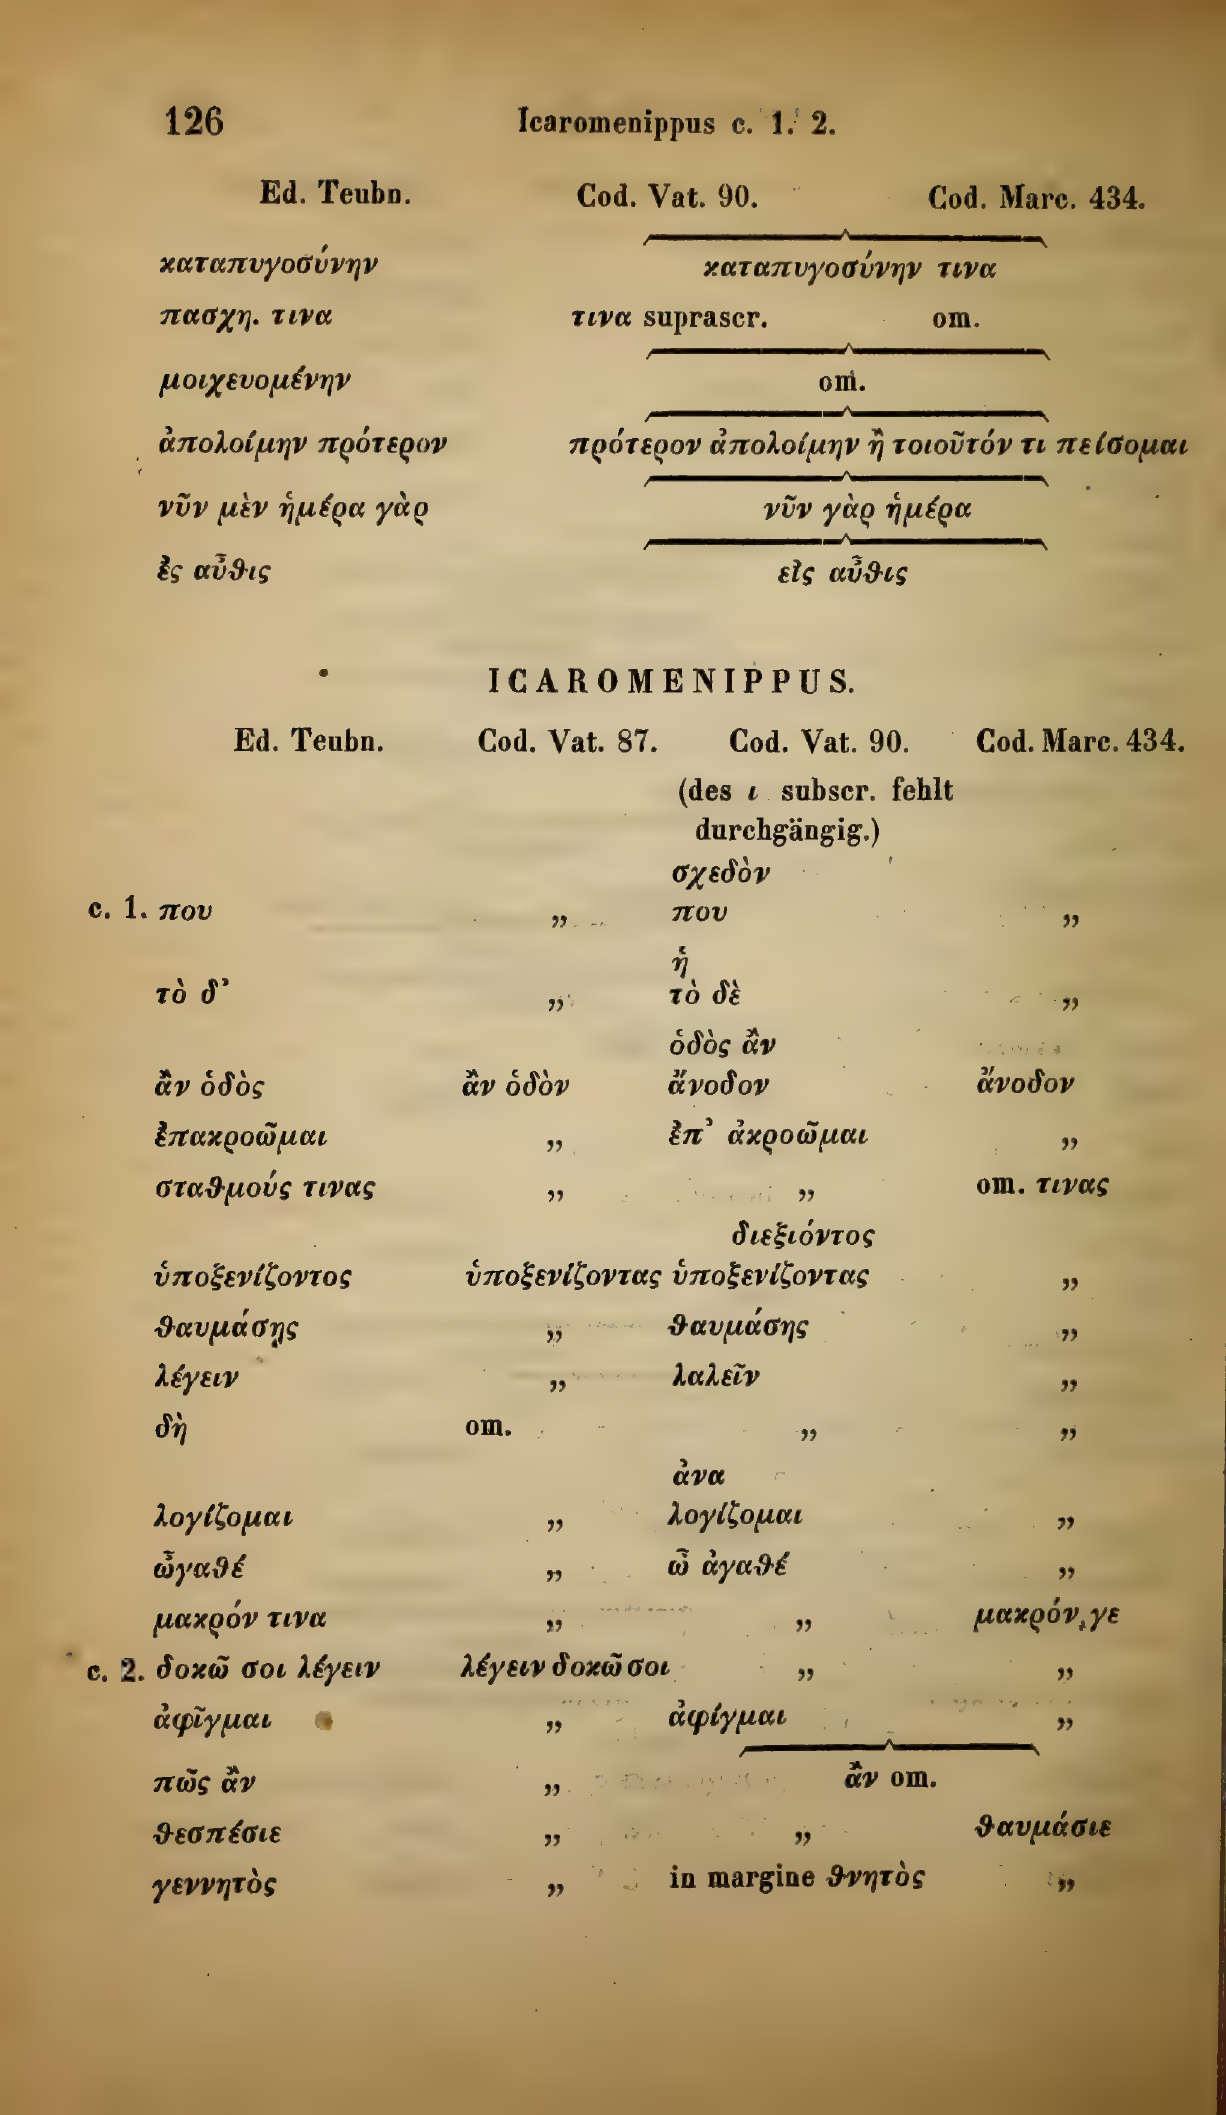 126 Icaromenippus c. 1. 2.
Ed. Teubn. Cod. Vat. 90. Cod. Marc. 434.
καταπυγοσύνην καταπυγοσύνην τινα
πασχη. τινα τινα suprascr. om.
μοιχευομένην om.
ἀπολοίμην πρότερον πρότερον ἀπολοίμην ἢ τοιοῦτόν τι πείσομαι
νῦν μὲν ἡμέρα γὰρ νῦν γὰρ ἡμέρα
ἐς αὖθις εἰς αὖθις
ICAROMENIPPUS.
Ed. Teubn. Cod. Vat. 87. Cod. Vat. 90. Cod. Marc. 434.
(des ι subscr. fehlt
durchgängig.)
σχεδὸν
c. 1. που „ που „
ἡ
τὸ δ’ „ τὸ δὲ „
ὁδὸς ἂν
ἂν ὁδὸς ἂν ὁδὸν ἄνοδον ἄνοδον
ἐπακροῶμαι „ ἐπ’ ἀκροῶμαι „
σταθμούς τινας „ „ om. τινας
διεξιόντος
ὑποξενίζοντος ὑποξενίζοντας ὑποξενίζοντας „
θαυμάσῃς „ θαυμάσης „
λέγειν „ λαλεῖν „
δὴ om. „ „
ἀνα
λογίζομαι „ λογίζομαι „
ὦγαθέ „ ὦ ἀγαθέ „
μακρόν τινα „ „ μακρόν γε
c. 2. δοκῶ σοι λέγειν λέγειν δοκῶ σοι „ „
ἀφῖγμαι „ ἀφίγμαι „
πῶς ἂν „ ἂν om.
θεσπέσιε „ „ θαυμάσιε
γεννητὸς „ in margine θνητὸς „